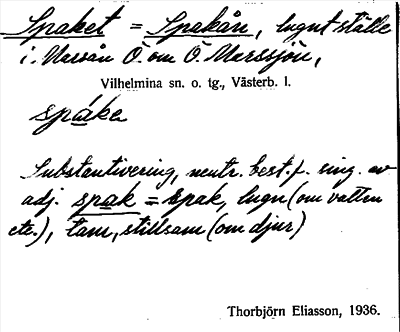 Spaket = Spakån, lugnt ställe
i Marsån Ö. om Ö. Marssjön,
Vilhelmina sn. o. tg., Västerb. l.
spáke
Substantivering, neutr. best. f. sing. av
adj. spak = spak, lugn (om vatten
etc.), tam, stillsam (om djur)
Thorbjörn Eliasson, 1936.